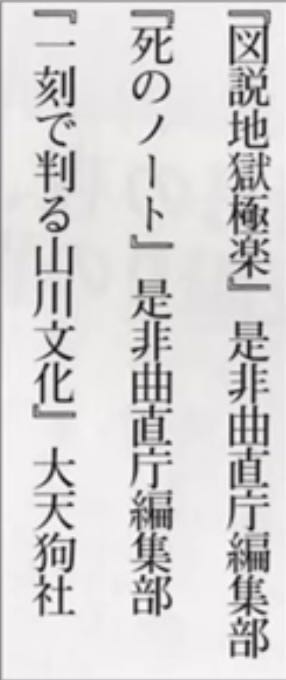 『図説地獄極楽』 是非曲直庁編集部
『死のノート』 是非曲直庁編集部
『一刻で判る山川文化』 大天狗社